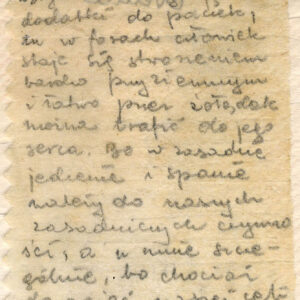 dodatki do paczek,
tu w forach człowiek
staje się stworzeniem
bardzo przyziemnym
i łatwo przez żołądek
można trafić do jego
serca. Bo w zasadzie
jedzenie i spanie
należy do naszych
zasadniczych czynno
ści, a u mnie szcze
gólnie, bo chociaż